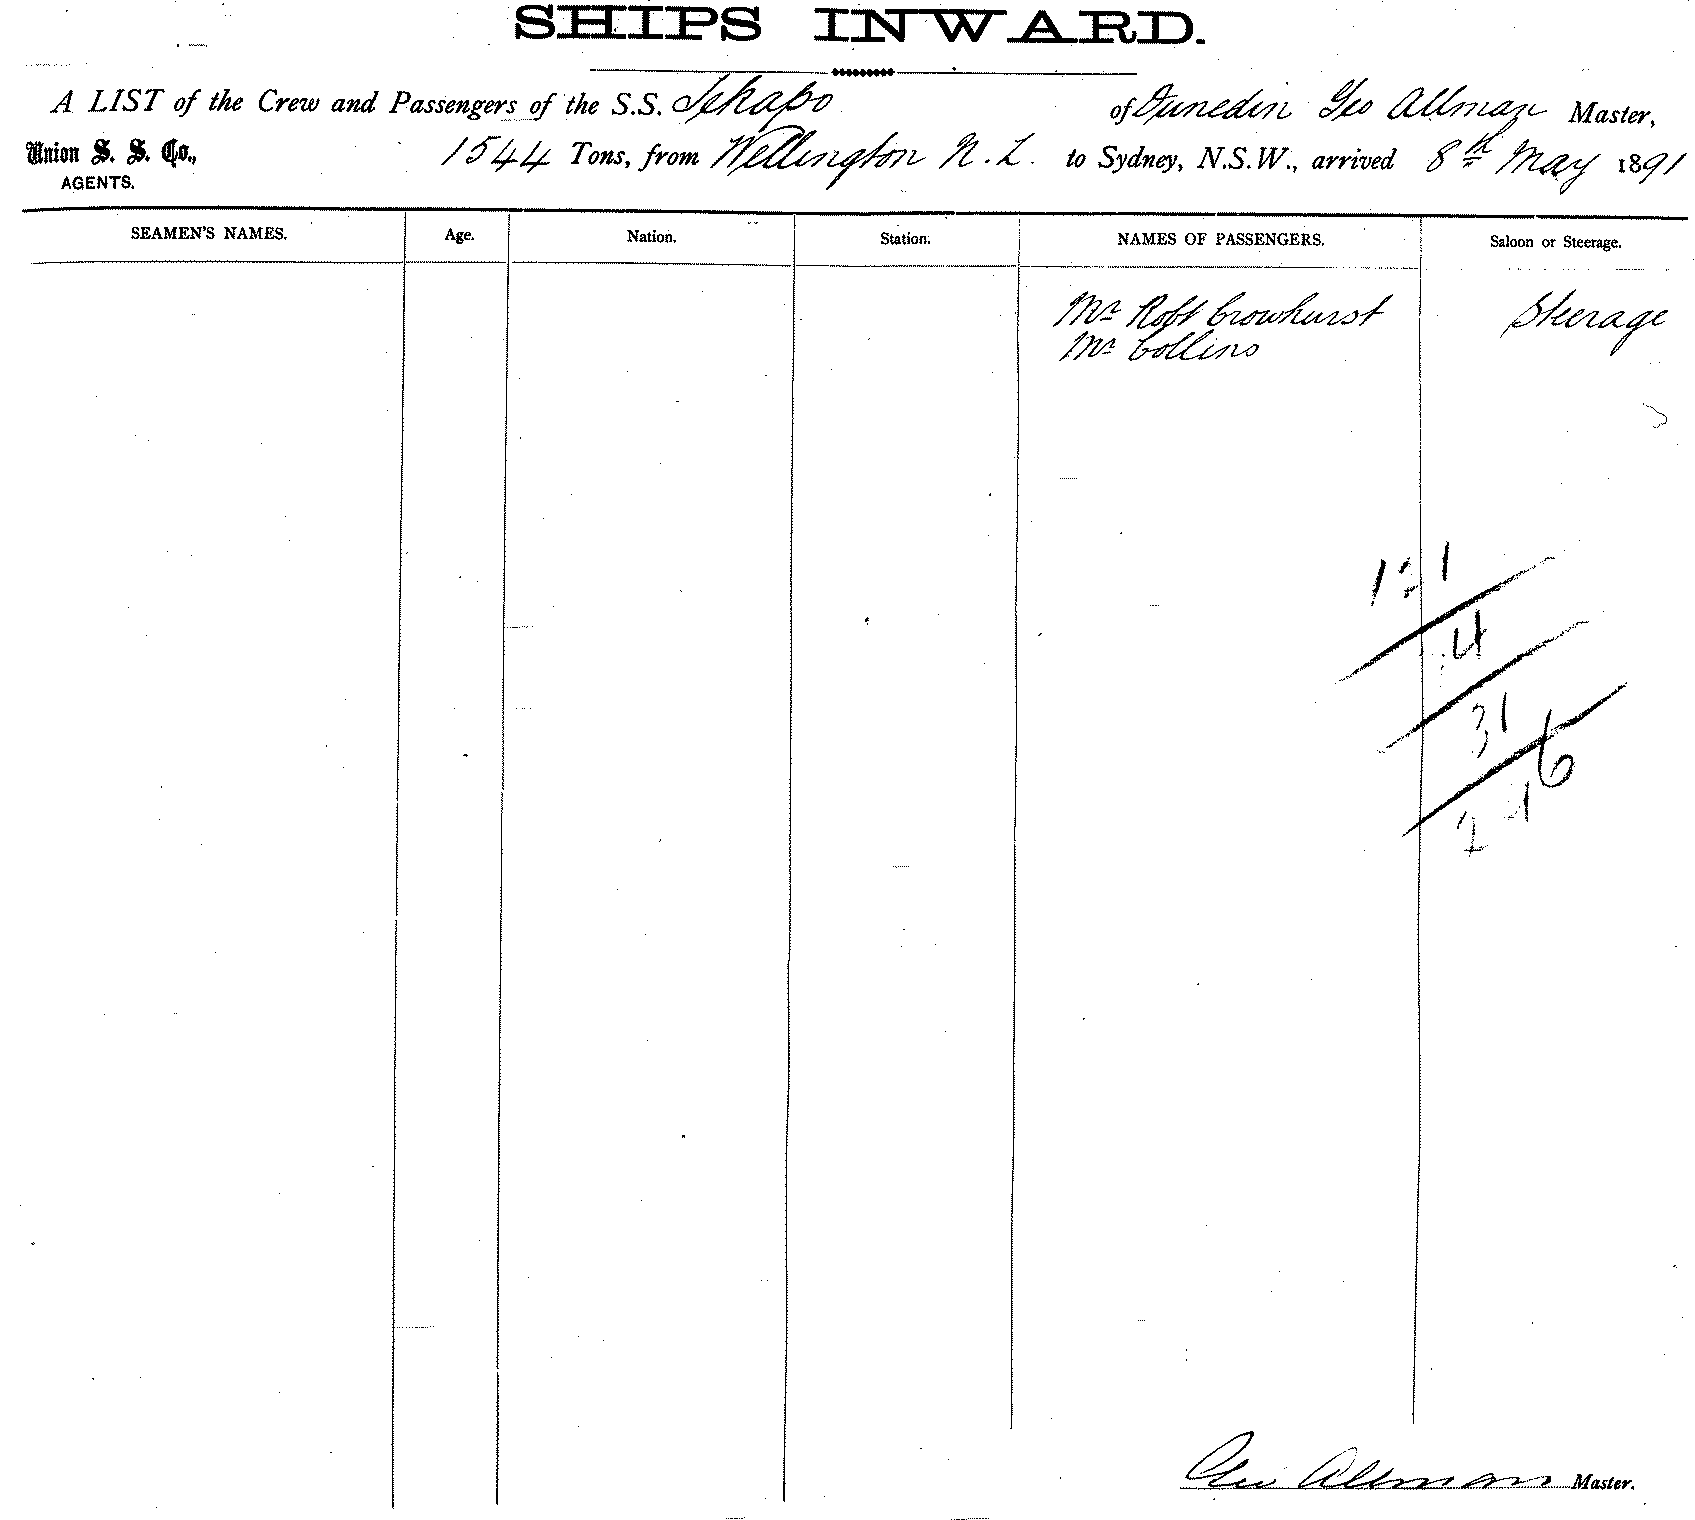 SHIPS INWARD.
A LIST of the Crew and Passengers of the S.S. Tekapo of Dunedin Geo Allman Master,
Union S. S. Co., 1544 Tons, from Wellington N. Z. to Sydney, N.S.W., arrived 8th May 1891
AGENTS.
SEAMEN'S NAMES. Age. Nation. Station. NAMES OF PASSENGERS. Saloon or Steerage.
Mr Robt Crowhurst Steerage
Mr Collins
4
31
6
Geo Allman Master.